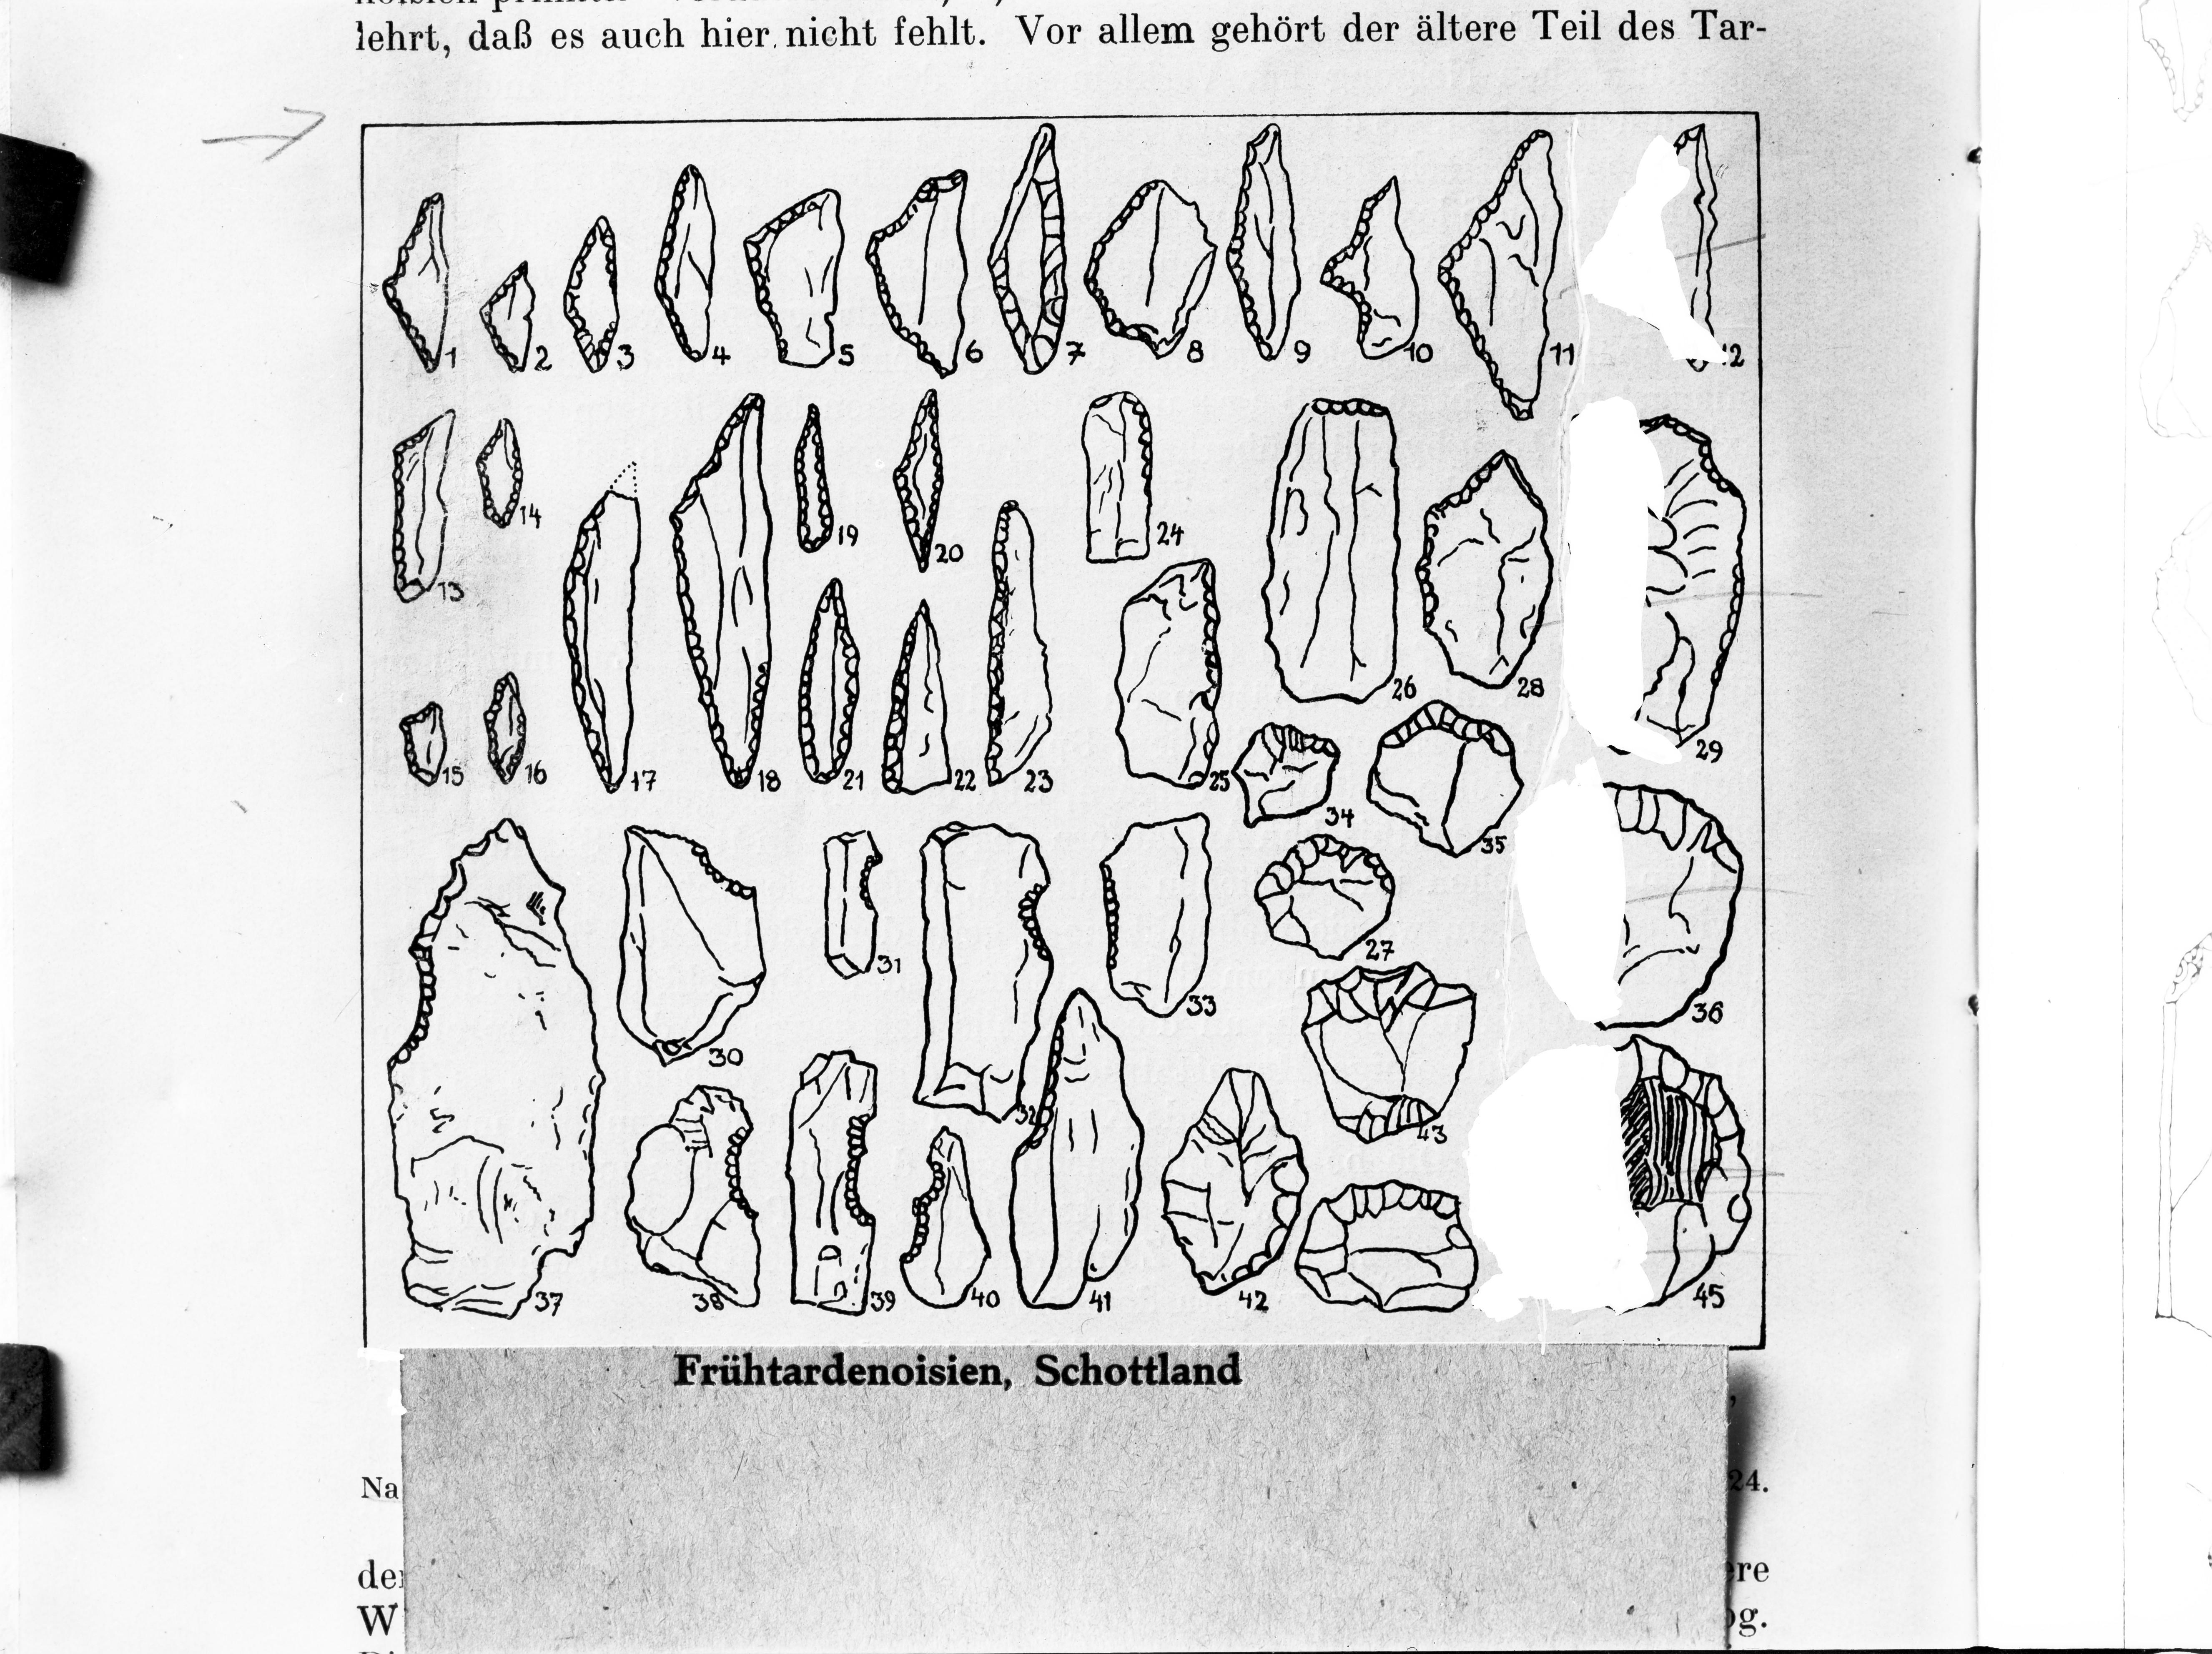 lehrt, daß es auch hier nicht fehlt. Vor allem gehört der ältere Teil des Tar-
1 2 3 4 5 6 7 8 9 10 11 12
13 14 19 20 24
15 16 17 18 21 22 23 25 26 28 29
34 35
30 31 32 33 27 36
37 38 39 40 41 42 43 45
Frühtardenoisien, Schottland
Na 24.
W